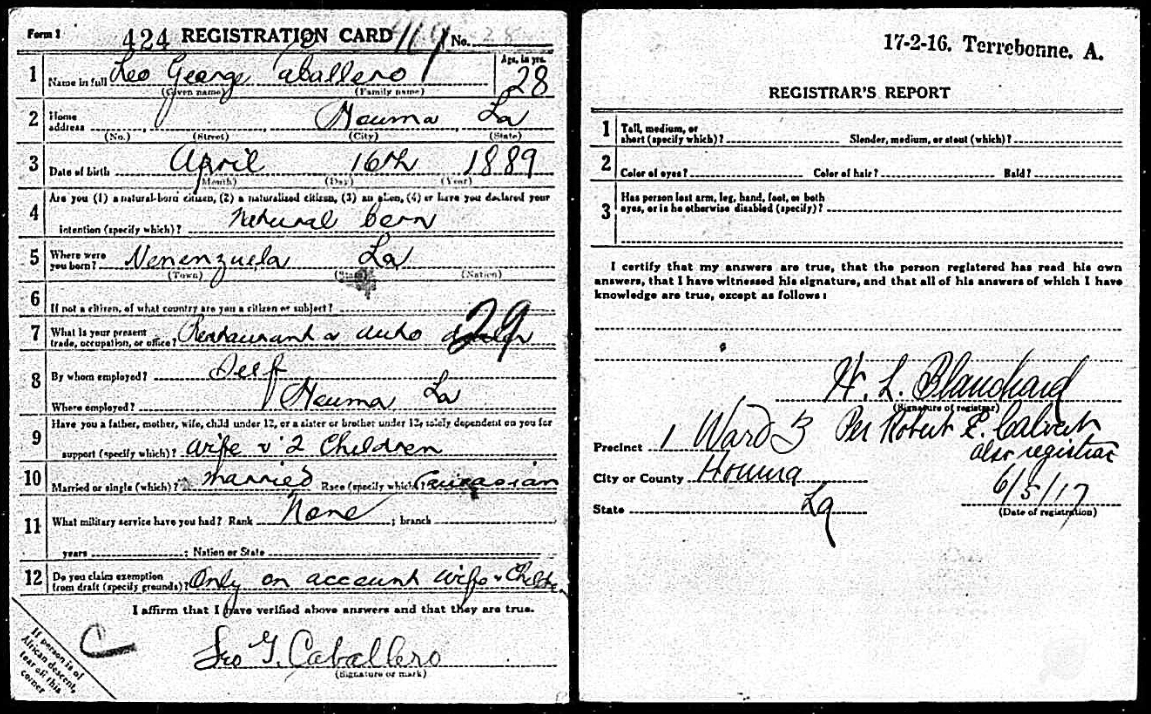 Form 1 424 REGISTRATION CARD 119 No. 28
1 Name in full Leo George Caballero Age, in yrs. 28
(Given name) (Family name)
2 Home address Houma La
(No.) (Street) (City) (State)
3 Date of birth April 16th 1889
(Month) (Day) (Year)
4 Are you (1) a natural-born citizen, (2) a naturalized citizen, (3) an alien, (4) or have you declared your
intention (specify which)? Natural born
5 Where were you born? Nenenzuela La
(Town) (State) (Nation)
6 If not a citizen, of what country are you a citizen or subject?
7 What is your present trade, occupation, or office? Restaurant & auto 29
8 By whom employed? Self
Where employed? Houma La
9 Have you a father, mother, wife, child under 12, or a sister or brother under 12, solely dependent on you for
support (specify which)? Wife & 2 Children
10 Married or single (which)? Married Race (specify which)? Caucasian
11 What military service have you had? Rank None ; branch
years ; Nation or State
12 Do you claim exemption from draft (specify grounds)? Only on account wife & Children
I affirm that I have verified above answers and that they are true.
C
Leo G. Caballero
(Signature or mark)
If person is of
African descent,
tear off this
corner
17-2-16. Terrebonne. A.
REGISTRAR'S REPORT
1 Tall, medium, or short (specify which)? Slender, medium, or stout (which)?
2 Color of eyes? Color of hair? Bald?
3 Has person lost arm, leg, hand, foot, or both
eyes, or is he otherwise disabled (specify)?
I certify that my answers are true, that the person registered has read his own
answers, that I have witnessed his signature, and that all of his answers of which I have
knowledge are true, except as follows:
H. L. Blanchard
(Signature of registrar)
Precinct 1 Ward 3 Per Robert E. Calvert
also registrar
City or County Houma
State La 6/5/17
(Date of registration)